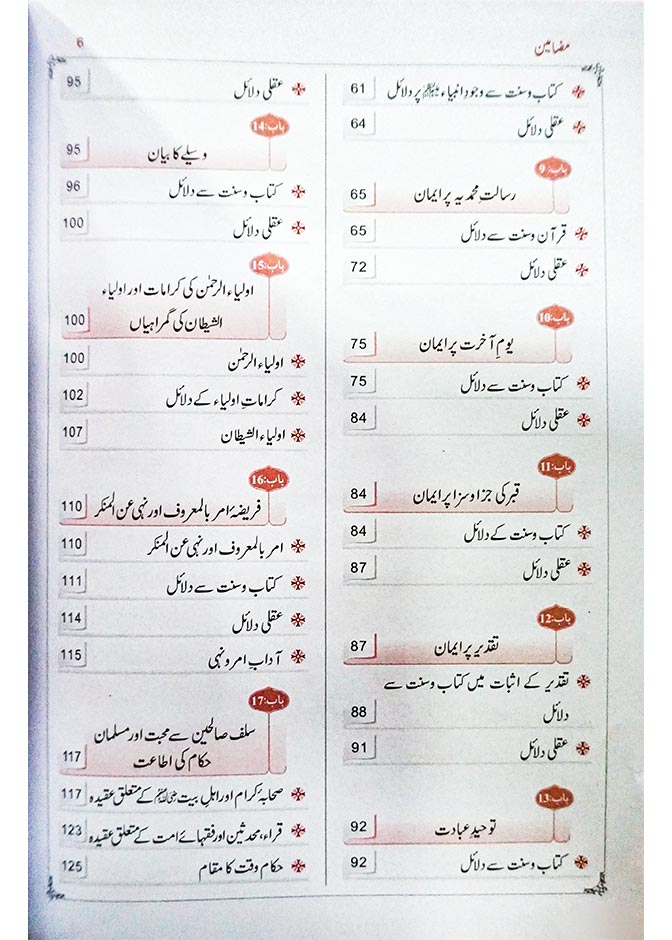 مضامین
6
کتاب وسنت سے وجودِ انبیاء ﷺ پر دلائل 61
عقلی دلائل 64
باب:9
رسالتِ محمدیہ پر ایمان 65
قرآن وسنت سے دلائل 65
عقلی دلائل 72
باب:10
یومِ آخرت پر ایمان 75
کتاب وسنت سے دلائل 75
عقلی دلائل 84
باب:11
قبر کی جزا وسزا پر ایمان 84
کتاب وسنت کے دلائل 84
عقلی دلائل 87
باب:12
تقدیر پر ایمان 87
تقدیر کے اثبات میں کتاب وسنت سے
دلائل 88
عقلی دلائل 91
باب:13
توحیدِ عبادت 92
کتاب وسنت سے دلائل 92
عقلی دلائل 95
باب:14
وسیلے کا بیان 95
کتاب وسنت سے دلائل 96
عقلی دلائل 100
باب:15
اولیاء الرحمٰن کی کرامات اور اولیاء
الشیطان کی گمراہیاں 100
اولیاء الرحمٰن 100
کراماتِ اولیاء کے دلائل 102
اولیاء الشیطان 107
باب:16
فریضۂ امر بالمعروف اور نہی عن المنکر 110
امر بالمعروف اور نہی عن المنکر 110
کتاب وسنت سے دلائل 111
عقلی دلائل 114
آدابِ امر ونہی 115
باب:17
سلف صالحین سے محبت اور مسلمان
حکام کی اطاعت 117
صحابۂ کرام اور اہلِ بیت کے متعلق عقیدہ 117
قراء، محدثین اور فقہائے امت کے متعلق عقیدہ 123
حکام وقت کا مقام 125